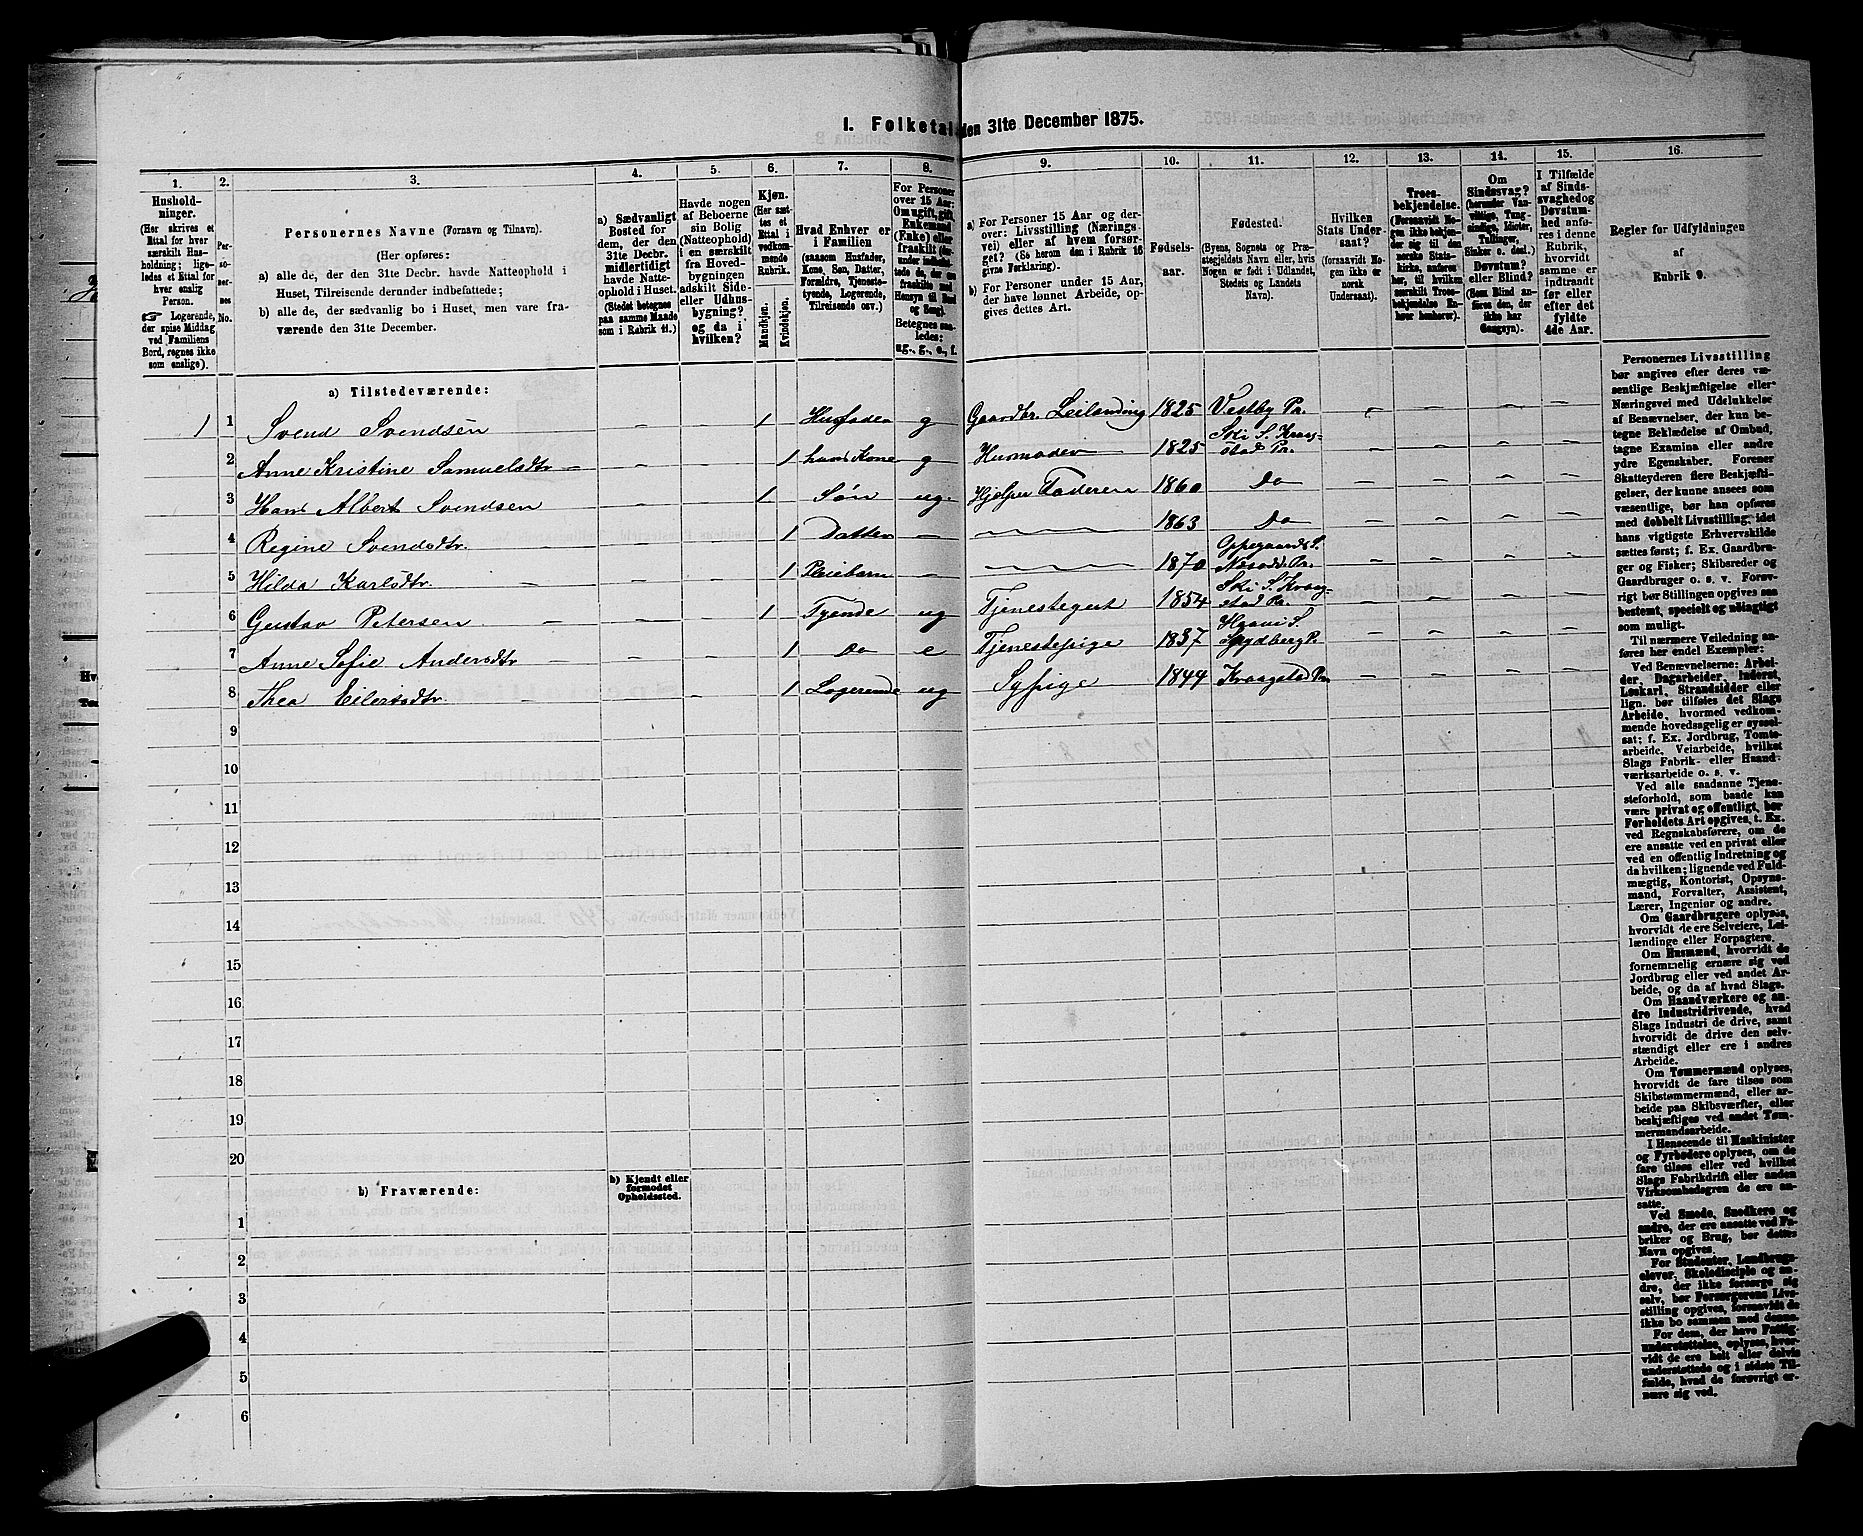 1. Folketal den 31te December 1875.
1.
2.
3.
4.
5.
6.
7.
8.
9.
10.
11.
12.
13.
14.
15.
16.
Hushold-
ninger.
(Her skrives et
Ettal for hver
særskilt Hus-
holdning; lige-
ledes et Ettal for
hver enslig
Person.
☞ Logerende,
der spise Middag
ved Familiens
Bord, regnes ikke
som enslige).
Per-
so-
ner-
nes
No.
Personernes Navne (Fornavn og Tilnavn).
(Her opføres:
a) alle de, der den 31te Decbr. havde Natteophold i
Huset, Tilreisende derunder indbefattede;
b) alle de, der sædvanlig bo i Huset, men vare fra-
værende den 31te December.
a) Sædvanligt
Bosted for
dem, der den
31te Decbr.
midlertidigt
havde Natte-
ophold i Huset.
(Stedet betegnes
paa samme Maade
som i Rubrik 11.)
Havde nogen
af Beboerne
sin Bolig
(Natteophold)
i en særskilt
fra Hoved-
bygningen
adskilt Side-
eller Udhus-
bygning?
og da i
hvilken?
Kjøn.
(Her sæt-
tes et
Ettal i
vedkom-
mende
Rubrik.
Mandkjøn.
Kvindekjøn.
Hvad Enhver er
i Familien
(saasom Husfader,
Kone, Søn, Datter,
Forældre, Tjeneste-
tyende, Logerende,
Tilreisende osv.)
For Personer
over 15 Aar:
Om ugift, gift,
Enkemand
(Enke) eller
fraskilt
Betegnes saa-
ledes:
ug., g., e., f.
a) For Personer 15 Aar og der-
over: Livsstilling (Nærings-
vei) eller af hvem forsør-
get (Se herom den i Rubrik 16
givne Forklaring).
b) For Personer under 15 Aar,
der have lønnet Arbeide, op-
gives dettes Art.
Fødsels-
aar.
Fødested.
(Byens, Sognets og Præ-
stegjeldets Navn eller, hvis
Nogen er født i Udlandet,
Stedets og Landets
Navn).
Hvilken
Stats Under-
saat?
(forsaavidt No-
gen ikke er
norsk
Undersaat).
Troes-
bekjendelse.
(Forsaavidt No-
gen ikke bekjen-
der sig til den
norske Stats-
kirke, anføres
her, til hvilken
særskilt Troes-
bekjendelse En-
hver henhører).
Om
Sindssvag?
(herunder Van-
vittige, Tung-
sindige, Idioter,
Tullinger,
Sinker o. desl.)
Døvstum?
eller Blind?
(Som Blind an-
føres den, der
ikke har
Gangsyn).
I Tilfælde
af Sinds-
svaghed og
Døvstum-
hed anfø-
res i denne
Rubrik,
hvorvidt
samme er
indtraadt
før eller
efter det
fyldte
4de Aar.
Regler for Udfyldningen
af
Rubrik 9.
a) Tilstedeværende:
1 1 Svend Svendsen – – 1 Husfader g Gaardbr. Leilending 1825 Vestby Pr. – – – –
2 Anne Kristine Samuelsdtr – – – 1 hans Kone g Husmoder 1825 Ski S. Kraag-
stad Pr. – – – –
3 Hans Albert Svendsen – – 1 Søn ug. Hjelper Faderen 1860 Do – – – –
4 Regine Svendsdtr. – – – 1 Datter – – 1863 Do – – – –
5 Hilda Karlsdtr. – – – 1 Pleiebarn – – 1870 Oppegaards S.
Næsodd. Pr. – – – –
6 Gustav Petersen – – – 1 Tyende ug Tjenestegut 1854 Ski S. Kraag-
stad Pr. – – – –
7 Anne Sofie Andersdtr – – – 1 Do e Tjenestepige 1837 S.
Spydberg P. – – – –
8 Thea Eilertsdtr. – – – 1 Logerende ug Sypige 1844 Kraagstad Pr. – – – –
9
10
11
12
13
14
15
16
17
18
19
20
b) Fraværende:
b) Kjendt eller
formodet
Opholdssted.
1
2
3
4
5
6
Personernes Livsstilling
bør angives efter deres væ-
sentlige Beskjæftigelse eller
Næringsvei med Udelukkelse
af Benævnelser, der kun be-
tegne Beklædelse af Ombud,
tagne Examina eller andre
ydre Egenskaber. Forener
Skatteyderen flere Beskjæfti-
gelser, der kunne ansees som
væsentlige, bør han opføres
med dobbelt Livsstilling, idet
hans vigtigste Erhvervskilde
sættes først; f. Ex. Gaardbru-
ger og Fisker; Skibsreder og
Gaardbruger o. s. v. Forøv-
rigt bør Stillingen opgives saa
bestemt, specielt og nøiagtigt
som muligt.
Til nærmere Veiledning an-
føres her endel Exempler:
Ved Benævnelserne: Arbei-
der, Dagarbeider, Inderst,
Løskarl, Strandsidder eller
lign. bør tilføies det Slags
Arbeide, hvormed vedkom-
mende hovedsagelig er syssel-
sat; f. Ex. Jordbrug, Tomte-
arbeide, Veiarbeide, hvilket
Slags Fabrik- eller Haand-
værksarbeide o. s. v.
Ved alle saadanne Tjene-
steforhold, som baade kan
være privat og offentligt, bør
Forholdets Art opgives, t. Ex.
ved Regnskabsførere, om de
ere ansatte ved en privat eller
ved en offentlig Indretning og
da hvilken; lignende ved Fuld-
mægtig, Kontorist, Opsyns-
mand, Forvalter, Assistent,
Lærer, Ingeniør og andre.
Om Gaardbrugere oplyses,
hvorvidt de ere Selveiere, Lei-
lændinge eller Forpagtere.
Om Husmænd, hvorvidt de
fornemmelig ernære sig ved
Jordbrug eller ved andet Ar-
beide, og da af hvad Slags.
Om Haandværkere og an-
dre Industridrivende, hvad
Slags Industri de drive, samt
hvorvidt de drive den selv-
stændigt eller ere i andres
Arbeide.
Om Tømmermænd oplyses,
hvorvidt de fare tilsøs som
Skibstømmermænd, eller ar-
beide paa Skibsværfter, eller
beskjæftiges ved andet Tøm-
mermandsarbeide.
I Henseende til Maskinister
og Fyrbødere oplyses, om de
fare tilsøs eller ved hvilket
Slags Fabrikdrift eller anden
Virksomhedsgren de ere an-
satte.
Ved Smede, Snedkere og
andre, der ere ansatte ved Fa-
briker og Brug, bør dettes
Navn opgives.
For Studenter, Landbrugs-
elever, Skoledisciple og an-
dre, der ikke forsørge sig
selv, bør Forsørgerens Livs-
stilling opgives, forsaavidt de
ikke bo sammen med denne.
For dem, der have Fattig-
understøttelse, oplyses, hvor-
vidt de ere helt eller delvis
understøttede og i sidste Til-
fælde, hvad de forøvrigt er-
nære sig ved.